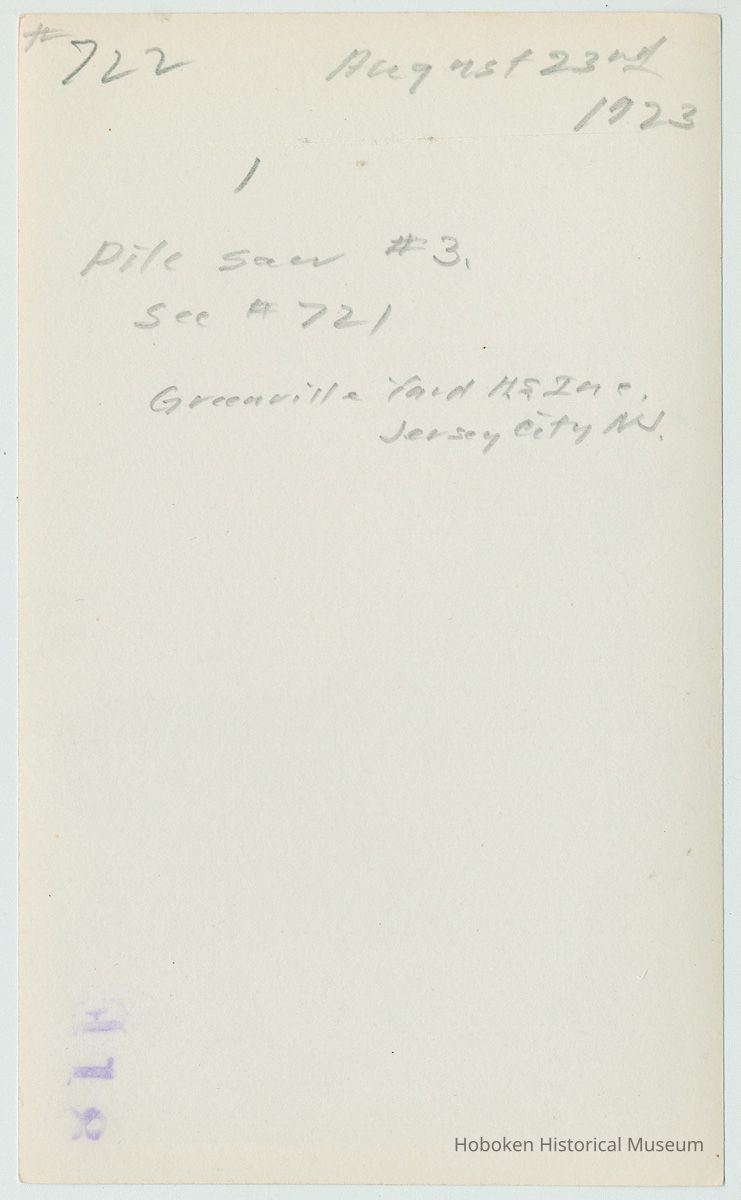 # 722 August 23rd
1923
1
Pile saw #3.
See # 721
Greenville Yard H.S. Inc.
Jersey City N.J.
Hoboken Historical Museum